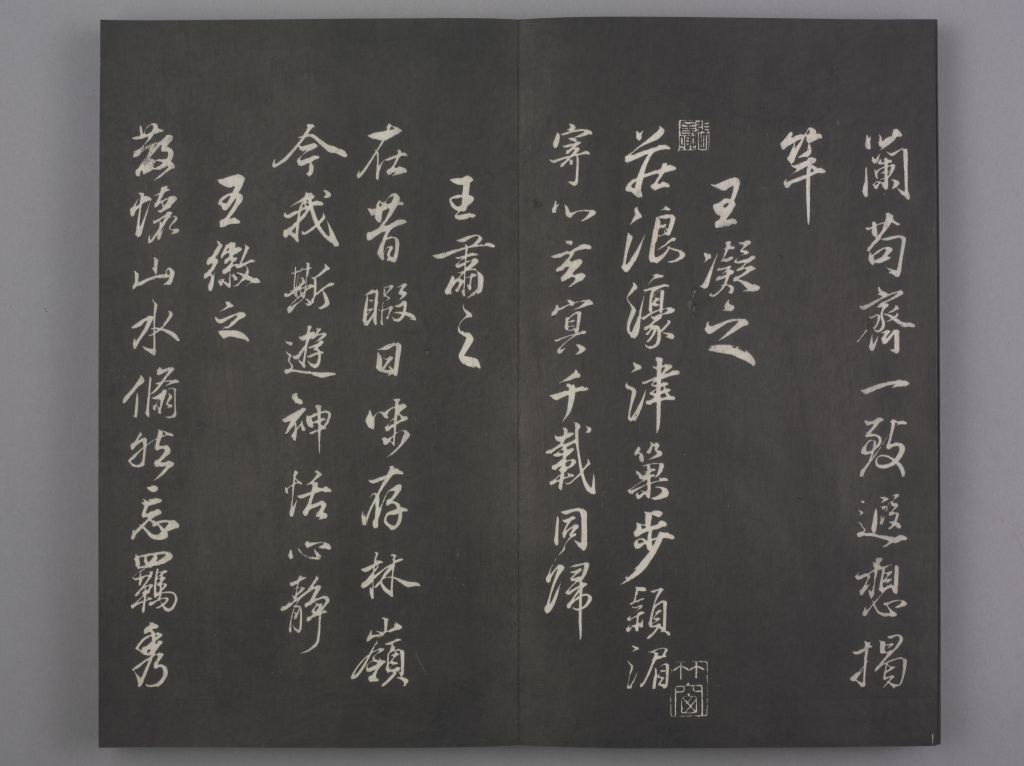 蘭苟齊一致遐想揭
竿
王凝之
莊浪濠津巢步潁湄
寄心玄冥千載同歸
王肅之
在昔暇日味存林嶺
今我斯遊神恬心靜
王徽之
散懷山水翛然忘羈秀
竹窗